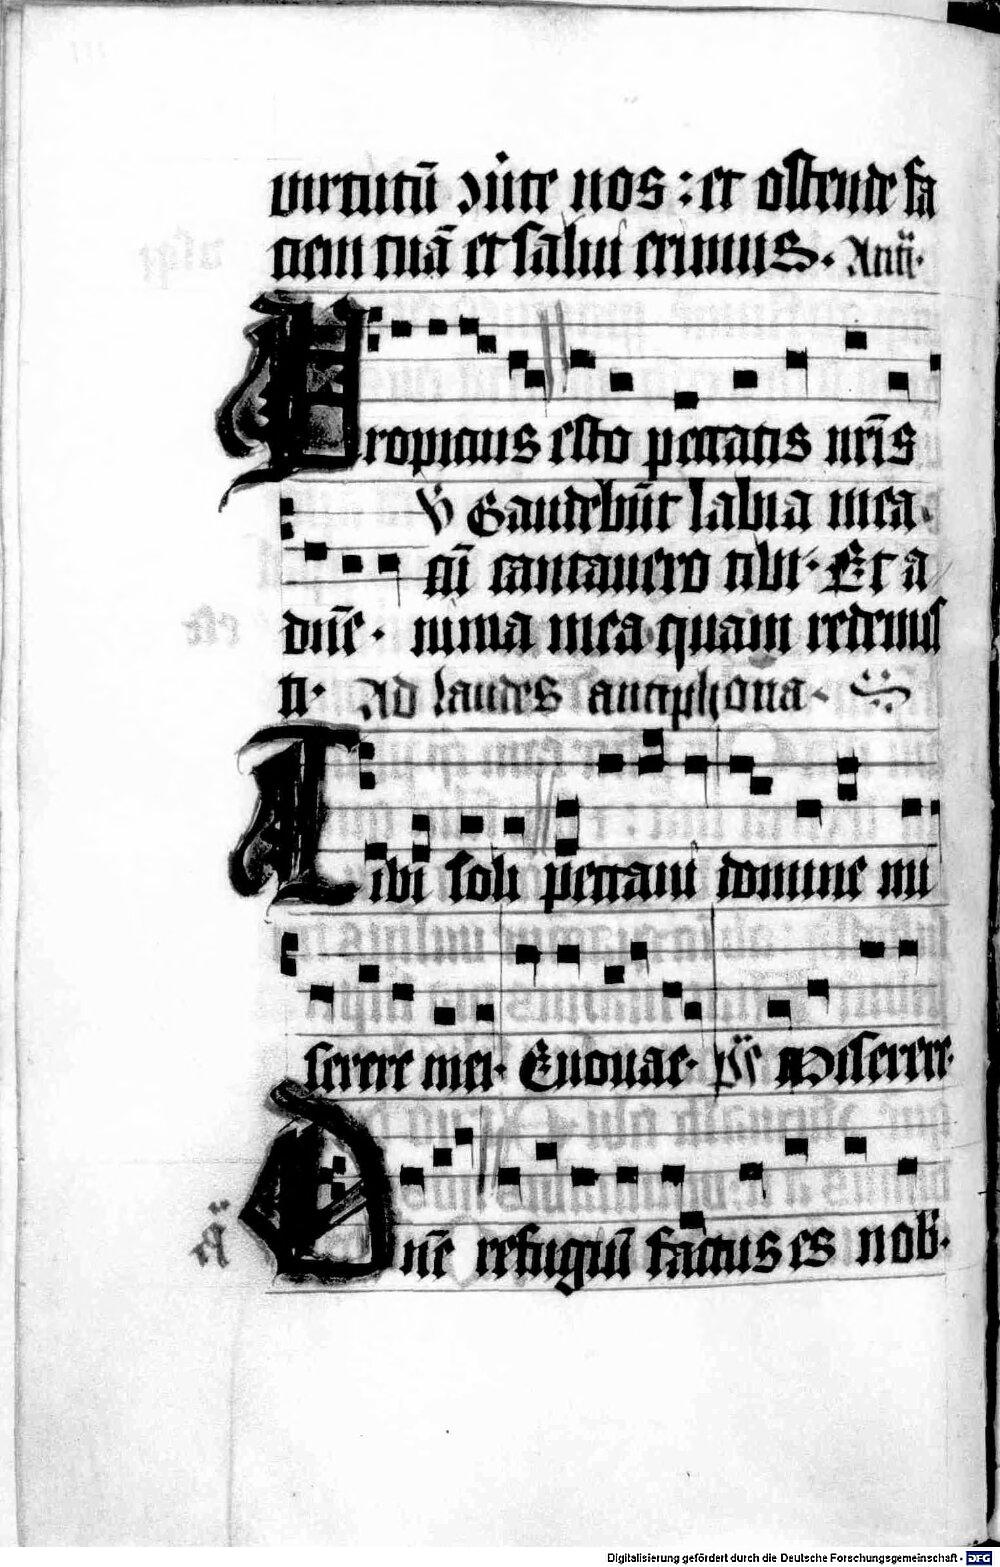 virtutū ↄv̄te nos : et ostende fa
ciem tuā et salvi erimus . Antī .
Propicius esto peccatis nr̄is
℣ Gaudebūt labia mea .
cū cantavero tibi . Et a
dn̄e . nima mea quam redemis
ti . Ad laudes antiphona .
Tibi soli peccavi domine mi
serere mei . Euouae . p̄s Miserere .
Dn̄e refugiū factus es nob̄ .
Digitalisierung gefördert durch die Deutsche Forschungsgemeinschaft - DFG